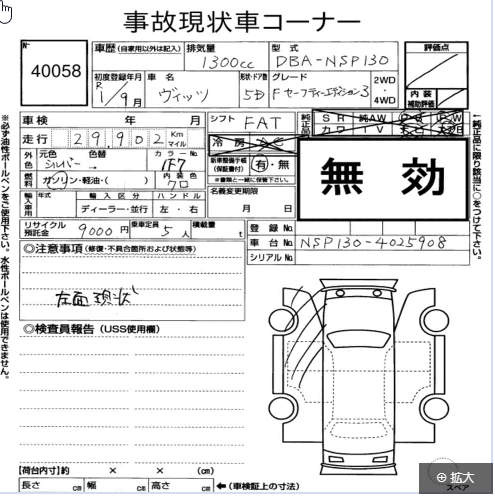 事故現状車コーナー
No 40058
車歴 (自家用以外は記入) 排気量 1300cc 型式 DBA-NSP130 評価点
初度登録年月 R1/9月 車名 ヴィッツ 形状・ドア数 5D グレード Fセーフティーエディション3 2WD・4WD 内装補助評価
車検 年 月 シフト FAT
走行 29,902 Km マイル 冷房
外色 元色 シルバー 色替 カラーNo. 1F7 新車整備手帳(保証書付) 有・無
※書類と一緒に保管下さい。
燃料 ガソリン・軽油・( ) 内装色 クロ
名義変更期限 月 日
輸入車用 年式 輸入区分 ディーラー・並行 ハンドル 左・右
無効
リサイクル預託金 9000円 乗車定員 5人 積載量 t
登録No.
車台No. NSP130-4025908
シリアルNo.
◎注意事項 (修復・不具合箇所および状態等)
左面現状
◎検査員報告 (USS使用欄)
【荷台内寸】約 × × (cm)
長さ cm 幅 cm 高さ cm ←(車検証上の寸法)
※必ず油性ボールペンをご使用下さい。水性ボールペンは使用できません。
↑純正品に限り該当に○をつけて下さい。
スペア
拡大